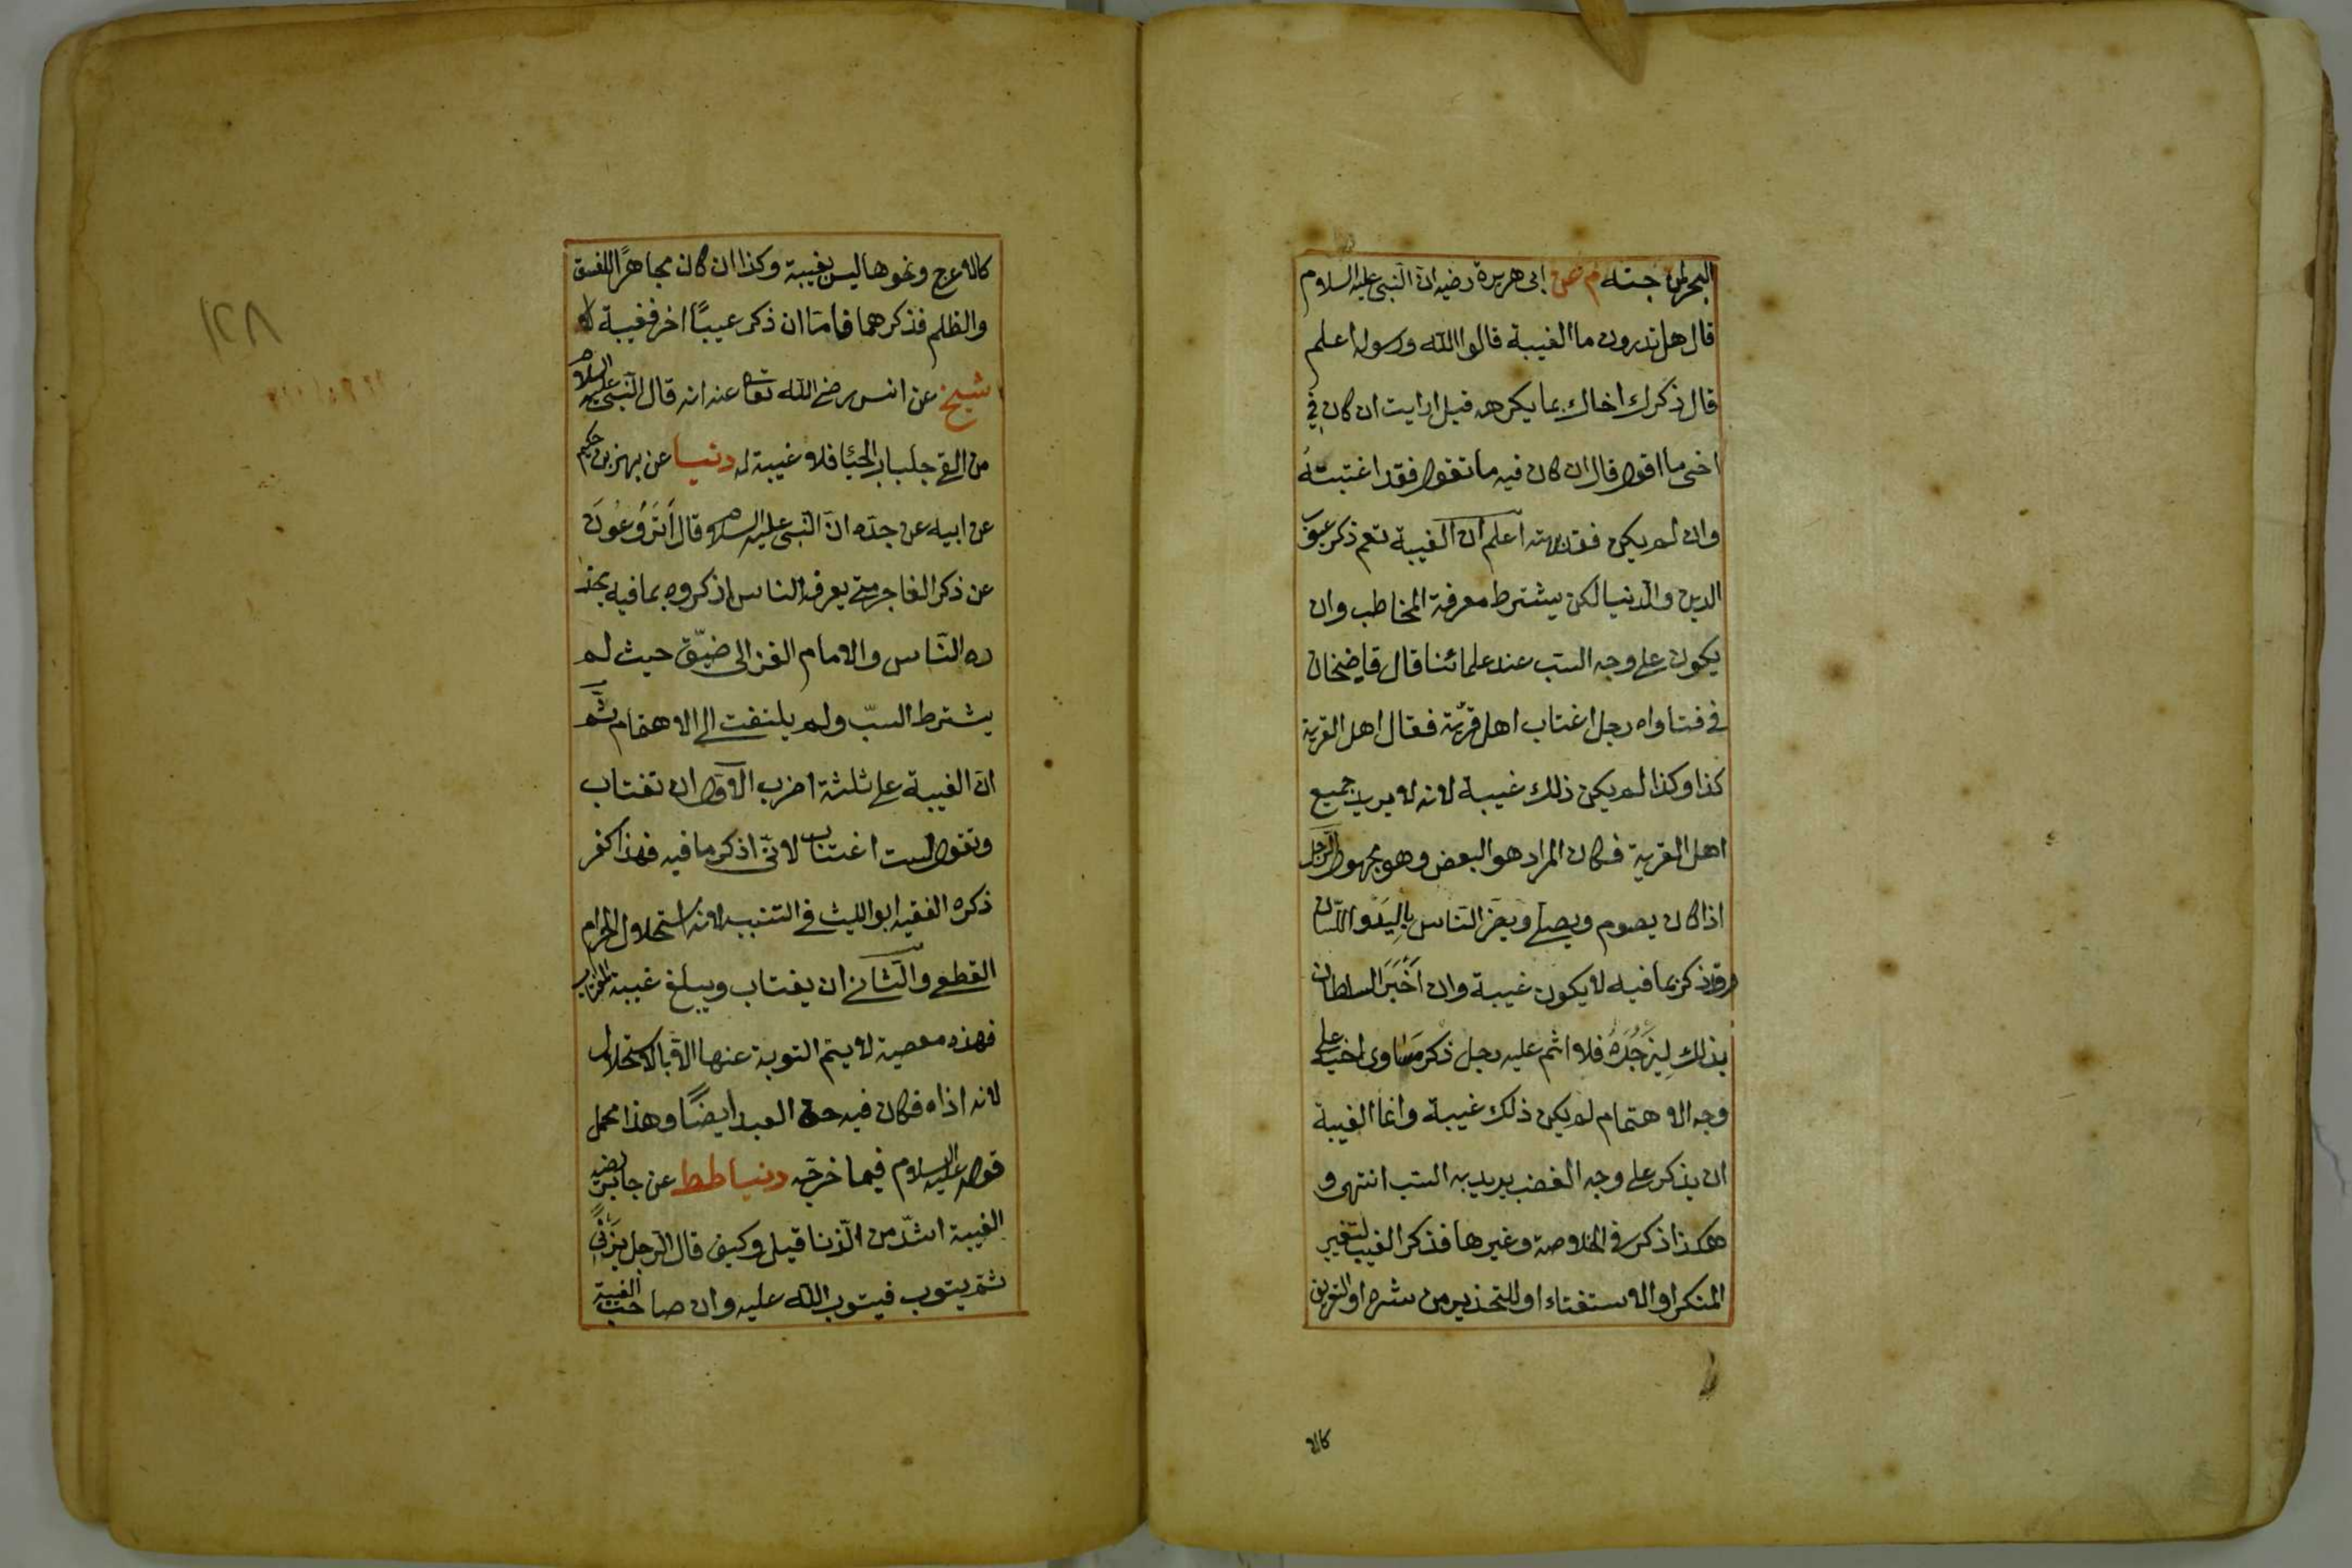 البحر لمزجته م عن ابى هريرة رضيه ان النبى عليه السلام
قال هل تدرون ما الغيبة قالوا الله ورسوله اعلم
قال ذكرك اخاك بما يكرهه قيل ارايت ان كان في
اخى ما اقول قال ان كان فيه ما تقول فقد اغتبته
وان لم يكن فقد بهته اعلم ان الغيبة تعم ذكر عيوب
الدين والدنيا لكن يشترط معرفة المخاطب وان
يكون على وجه السب عند علمائنا قال قاضيخان
في فتاواه رجل اغتاب اهل قرية فقال اهل القرية
كذا وكذا لم يكن ذلك غيبة لانه لا يريد جميع
اهل القرية فكان المراد هو البعض وهو مجهول الرجل
اذا كان يصوم ويصلى ويضر الناس باليد واللسان
فذكر بما فيه لا يكون غيبة وان اخبر السلطان
بذلك ليزجره فلا اثم عليه رجل ذكر مساوى اخيه على
وجه الاهتمام لم يكن ذلك غيبة وانما الغيبة
ان يذكر على وجه الغضب يريد به السب انتهى و
هكذا ذكر في الخلاصة وغيرها فذكر الغيب لتغيير
المنكر او الاستفتاء او للتحذير من شره او التعريف
كالا
١٢٨
كالاعرج ونحوها ليس بغيبة وكذا ان كان مجاهرًا للفسق
والظلم فذكرهما فاما ان ذكر عيبًا اخر فغيبة
شيخ عن انس رضى الله تعا عنه انه قال النبى عليه السلام
من القى جلباب الحياء فلا غيبة له دنيا عن بهز بن حكيم
عن ابيه عن جده ان النبى عليه السلام قال أترعون
عن ذكر الفاجر متى يعرفه الناس اذكروه بما فيه يحذ
ره الناس والامام الغزالى ضيّق حيث لم
يشترط السبّ ولم يلتفت الى الاهتمام ثم
ان الغيبة على ثلثة اضرب الاول ان تغتاب
وتقول لست اغتاب لانى اذكر ما فيه فهذا كفر
ذكره الفقيه ابو الليث في التنبيه لانه استحلال للحرام
القطعى والثانى ان يغتاب ويبلغ غيبة المغتاب
فهذه معصية لا يتم التوبة عنها الا بالاستحلال
لانه اذاه فكان فيه حق العبد ايضًا وهذا محمل
قوله عليه السلام فيما خرجه دنيا طط عن جابر رضيه
الغيبة اشدّ من الزنا قيل وكيف قال الرجل يزنى
ثم يتوب فيتوب الله عليه وان صاحب الغيبة